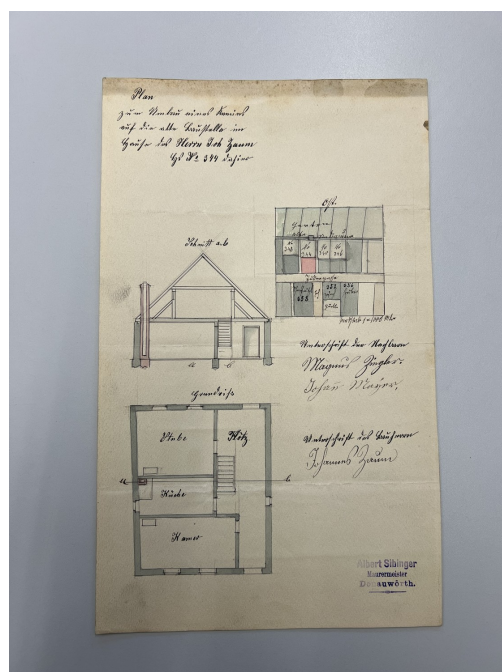 Plan
zum Umbau eines Kamins
auf die alte Baustelle im
Hause des Herrn Joh Zaum
Hs № 344 dahier
Ost.
Garten
Schnitt a.b
a b
Unterschrift der Nachbarn
Magnus Ziegler.
Johan Mayer.
Grundriss
Stube
Flötz
a b
Küche
Kamer
Unterschrift des Bauherrn
Johannes Zaum
Albert Sibinger
Maurermeister
Donauwörth.